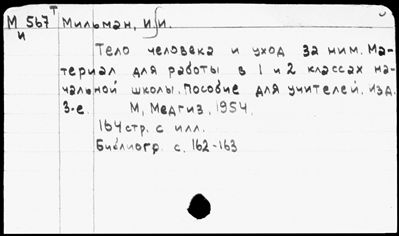 М 567 Т Мильман, И.И.
и
Тело человека и уход за ним. Ма-
териал для работы в 1 и 2 классах на-
чальной школы. Пособие для учителей. Изд.
3-е. М, Медгиз, 1954.
164 стр. с илл.
Библиогр. с. 162-163